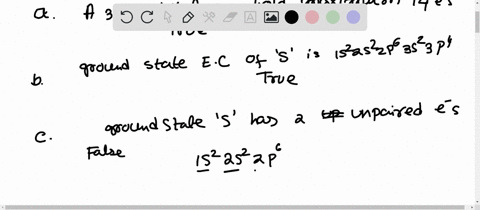 a. A 3
14 es
True
b. ground state E.C of 'S' is 1s² 2s² 2p⁶ 3s² 3p⁴
True
c. ground state 'S' has 2 unpaired e⁻s
False
1s² 2s² 2p⁶